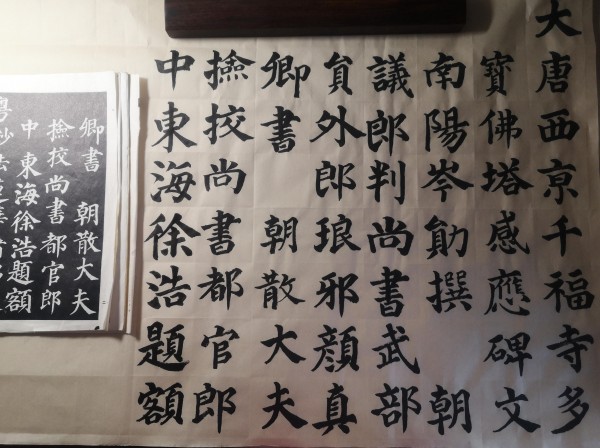 大唐西亰千福寺多
寶佛塔感應碑文
南陽岑勛撰 朝
議郎判尚書武部
員外郎琅邪顏真
卿書 朝散大夫
撿挍尚書都官郎
中東海徐浩題額
卿書 朝散大夫
撿挍尚書都官郎
中東海徐浩題額